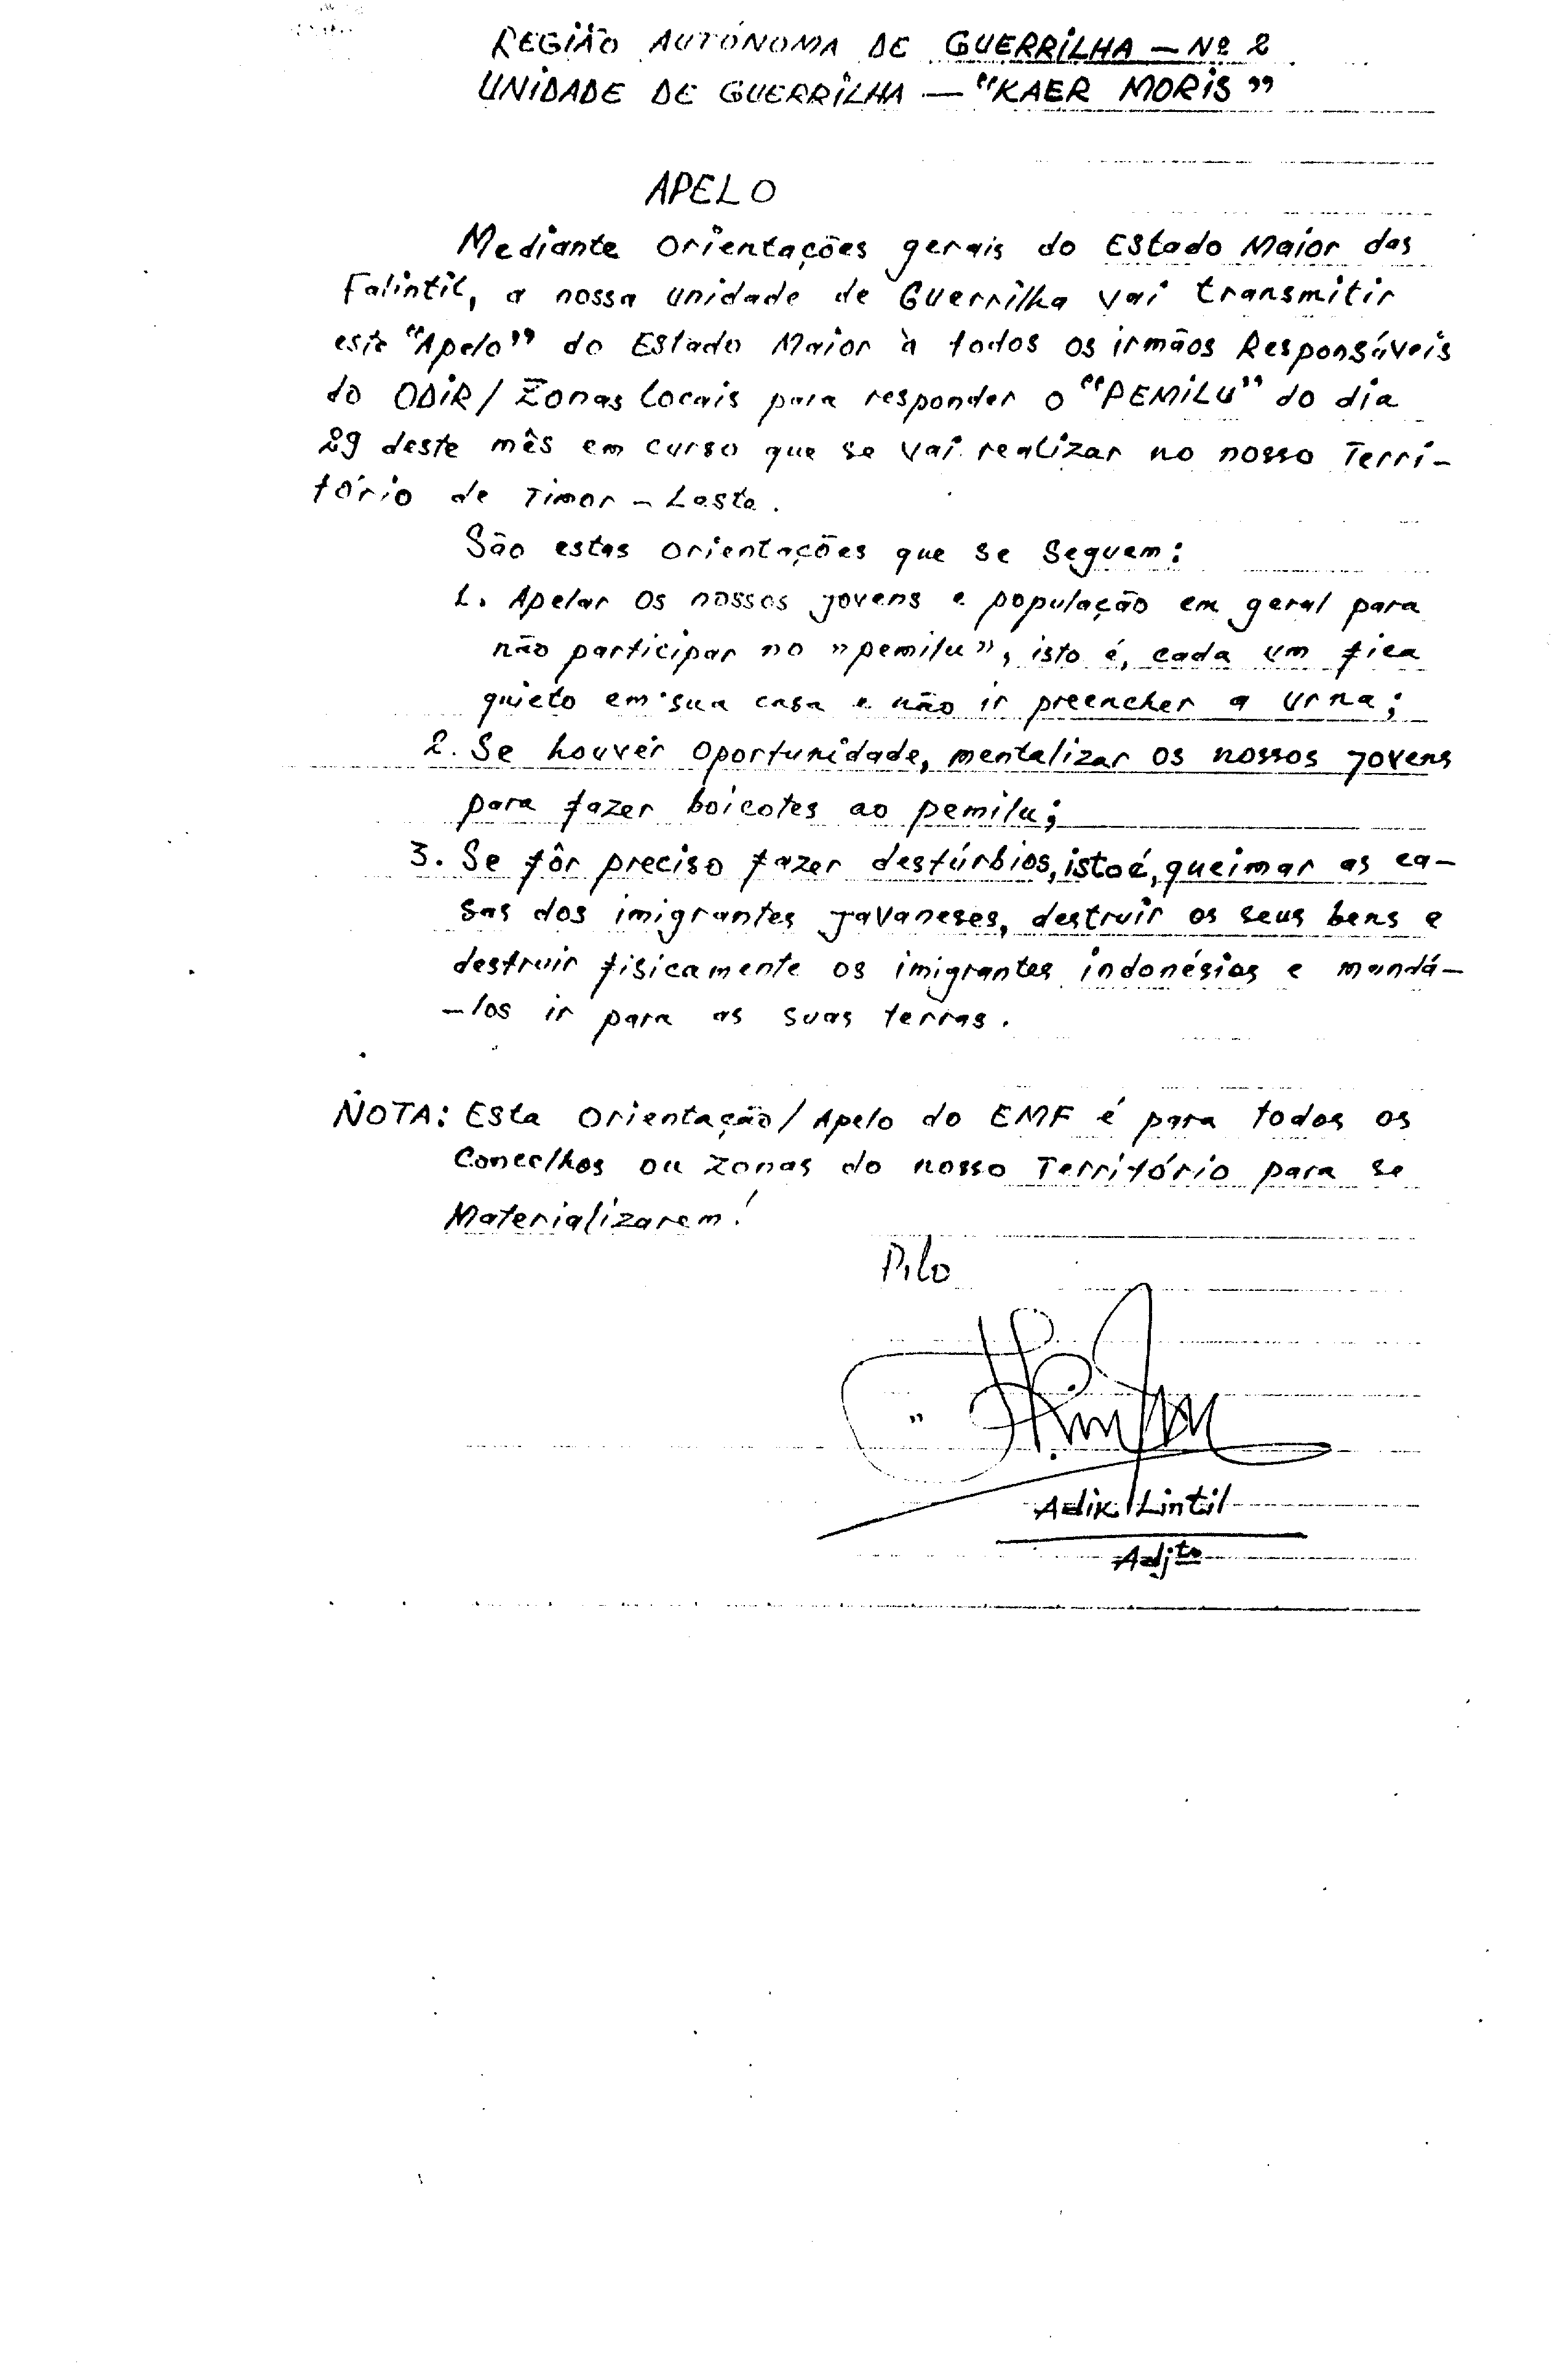 REGIÃO AUTÓNOMA DE GUERRILHA — Nº 2
UNIDADE DE GUERRILHA — "KAER MORIS"
APELO
Mediante Orientações gerais do Estado Maior das
Falintil, a nossa unidade de Guerrilha vai transmitir
este "Apelo" do Estado Maior à todos os irmãos Responsáveis
do ODIR/Zonas locais para responder o "PEMILU" do dia
29 deste mês em curso que se vai realizar no nosso Terri-
tório de Timor-Leste.
São estas orientações que se seguem:
1. Apelar os nossos jovens e população em geral para
não participar no "pemilu", isto é, cada um fica
quieto em sua casa e não ir preencher a urna;
2. Se houver oportunidade, mentalizar os nossos jovens
para fazer boicotes ao pemilu;
3. Se fôr preciso fazer destúrbios, isto é, queimar as ca-
sas dos imigrantes javaneses, destruir os seus bens e
destruir fisicamente os imigrantes indonésios e mandá-
-los ir para as suas terras.
NOTA: Esta Orientação/Apelo do EMF é para todos os
Concelhos ou zonas do nosso Território para se
Materializarem!
Pilo
Adik Lintil
Adjto